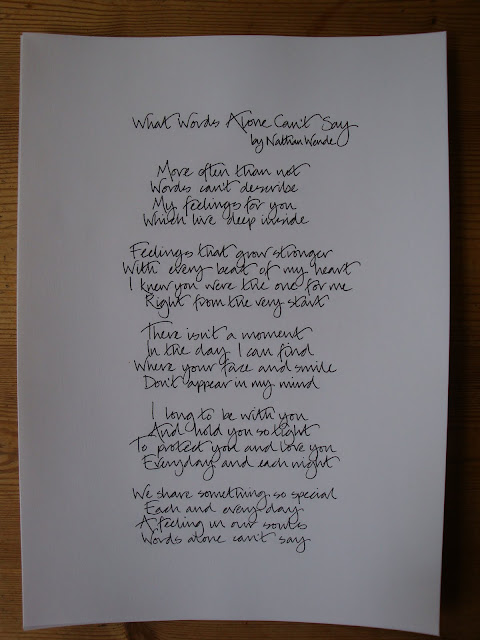 What Words Alone Can't Say
by Nathan Wende
More often than not
Words can't describe
My feelings for you
Which live deep inside
Feelings that grow stronger
With every beat of my heart
I knew you were the one for me
Right from the very start
There isn't a moment
In the day I can find
Where your face and smile
Don't appear in my mind
I long to be with you
And hold you so tight
To protect you and love you
Everyday and each night
We share something so special
Each and every day
A feeling in our souls
Words alone can't say